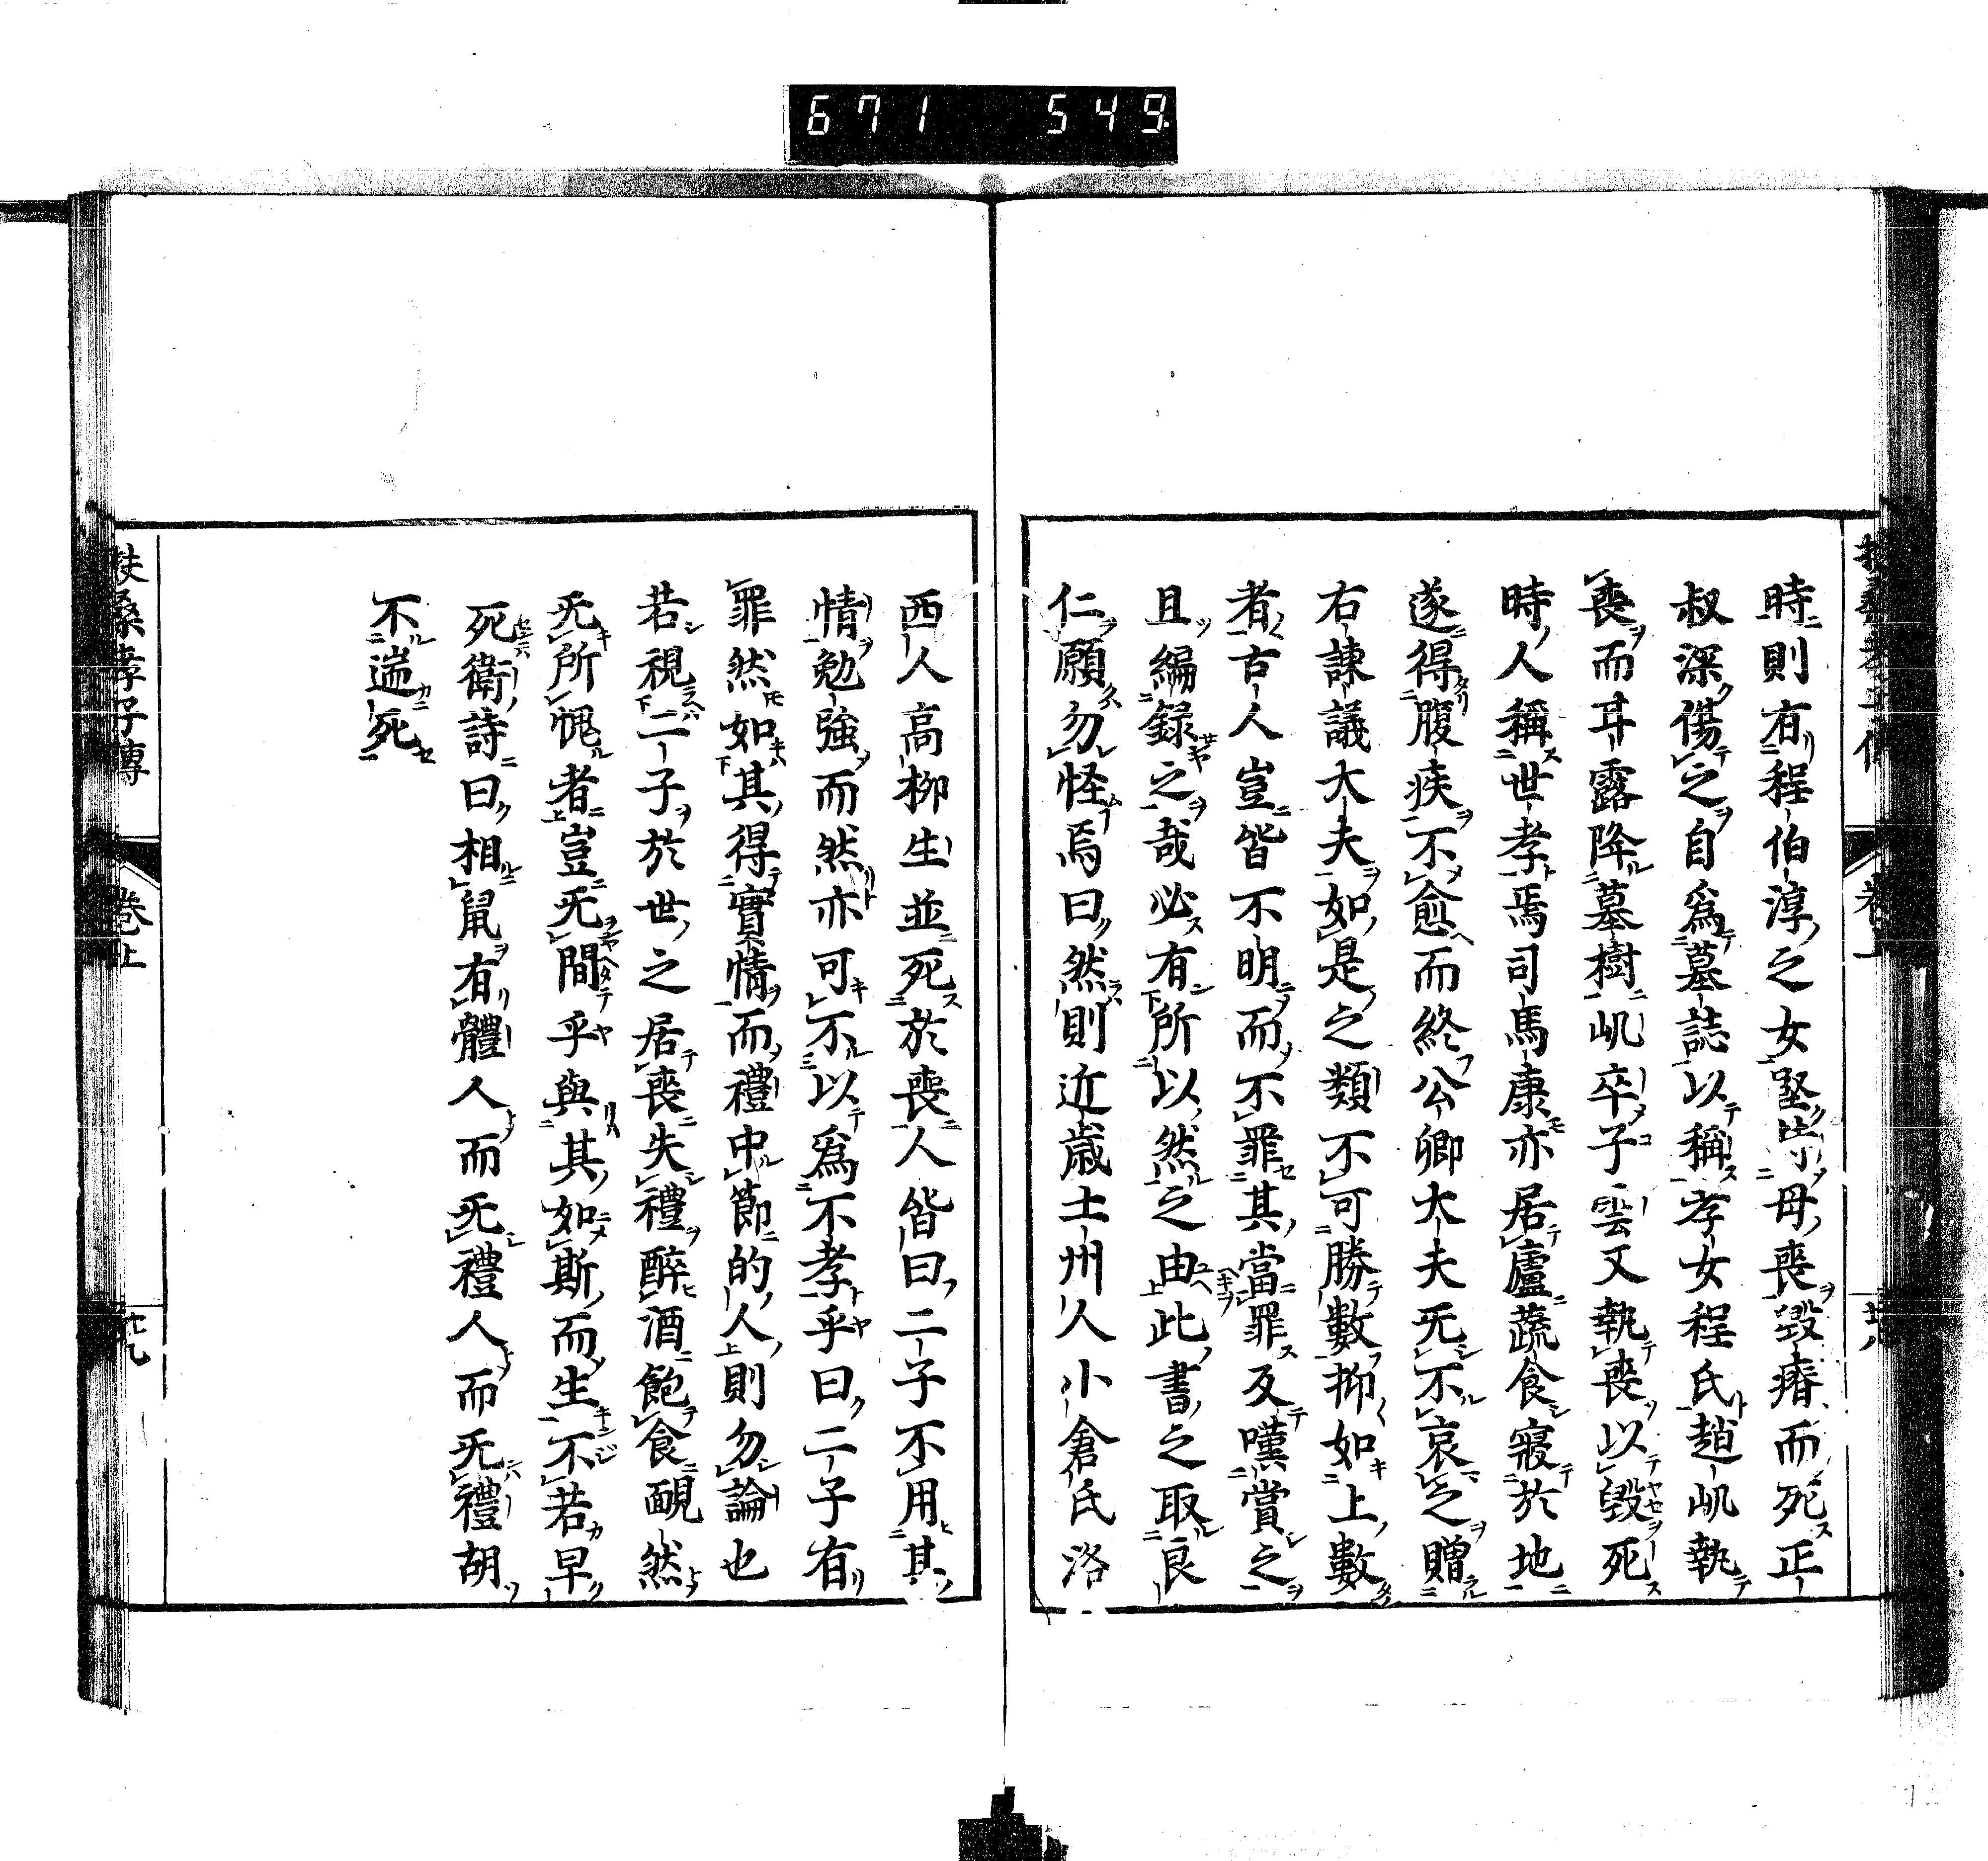 671 549
時則有程伯淳之女堅出母喪毀瘠而死正
叔深傷之自爲墓誌以稱孝女程氏趙㞦執
喪而甘露降墓樹㞦卒子雲又執喪以毀死
時人稱世孝焉司馬康亦居廬蔬食寢於地
遂得腹疾不愈而終公卿大夫无不哀之贈
右諫議大夫如是之類不可勝數抑如上數
者古人豈皆不明而不罪其當罪反嘆賞之
且編録之哉必有所以然之由此書之取良
仁願勿怪焉曰然則近歳土州人小倉氏洛
西人高柳生並死於喪人皆曰二子不用其
情勉強而然亦可不以爲不孝乎曰二子有
罪然如其得實情而禮中節的人則勿論也
若視二子於世之居喪失禮醉酒飽食靦然
无所愧者豈无間乎與其如斯而生不若早
死衛詩曰相鼠有體人而无禮人而无禮胡
不遄死
扶桑孝子傳 卷上 廿九